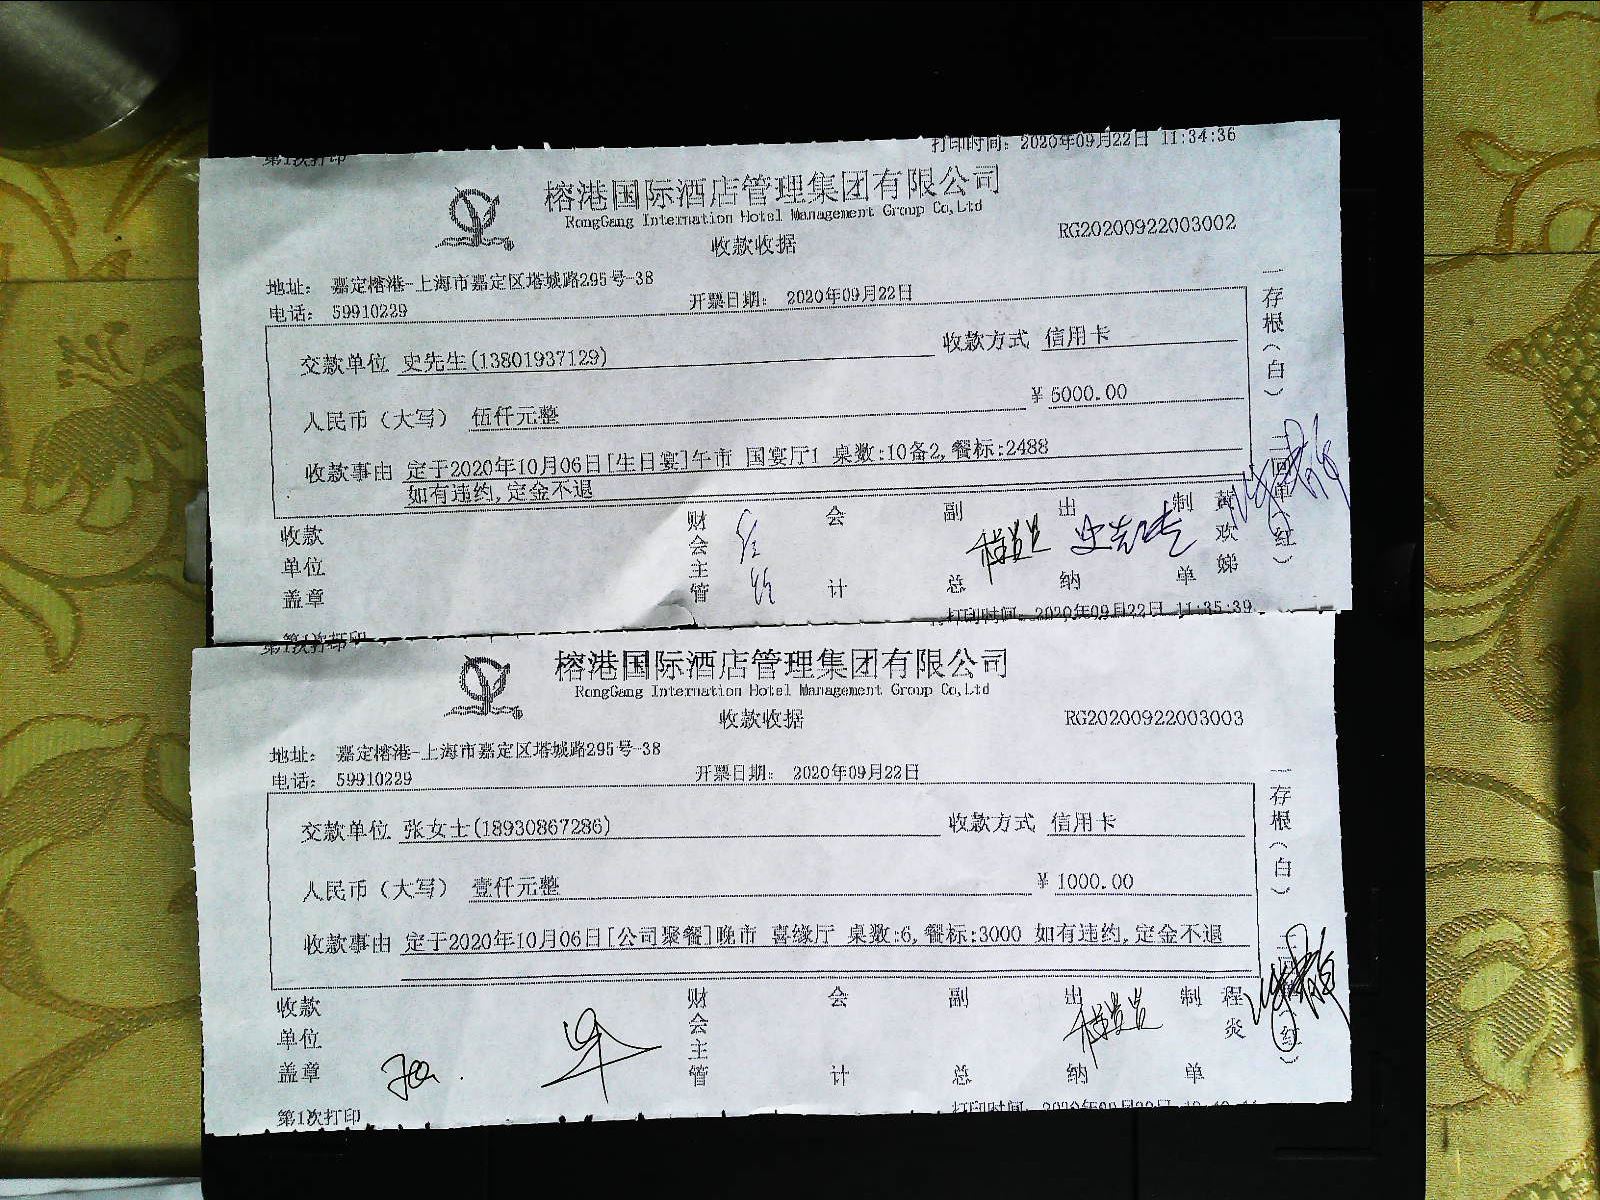 第1次打印
打印时间: 2020年09月22日 11:34:36
榕港国际酒店管理集团有限公司
RongGang Internation Hotel Management Group Co,Ltd
收款收据
RG20200922003002
地址: 嘉定榕港-上海市嘉定区塔城路295号-38
电话: 59910229
开票日期: 2020年09月22日
交款单位 史先生(13801937129)
收款方式 信用卡
人民币(大写) 伍仟元整
¥ 5000.00
收款事由 定于2020年10月06日[生日宴]午市 国宴厅1 桌数:10备2,餐标:2488
如有违约,定金不退
收款单位盖章
财会主管
会计
副总
出纳
史先生
制单
黄欢娣
一存根(白)
二回单(红)
第1次打印
打印时间: 2020年09月22日 11:35:39
榕港国际酒店管理集团有限公司
RongGang Internation Hotel Management Group Co,Ltd
收款收据
RG20200922003003
地址: 嘉定榕港-上海市嘉定区塔城路295号-38
电话: 59910229
开票日期: 2020年09月22日
交款单位 张女士(18930867286)
收款方式 信用卡
人民币(大写) 壹仟元整
¥ 1000.00
收款事由 定于2020年10月06日[公司聚餐]晚市 喜缘厅 桌数:6,餐标:3000 如有违约,定金不退
收款单位盖章
财会主管
会计
副总
出纳
制单
程炎
一存根(白)
第1次打印
打印时间: